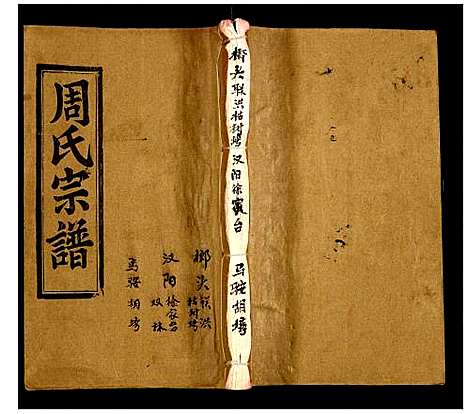 周氏宗譜
榔头 联洪 桔树塆
汉阳 徐家台 双林
马
胡塆
榔头联洪桔树塆 汉阳徐家台 马驼胡塆